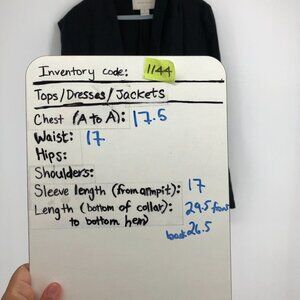 Inventory code: 1144
Tops/Dresses/Jackets
Chest (A to A): 17.5
Waist: 17
Hips:
Shoulders:
Sleeve length (from armpit): 17
Length (bottom of collar: 29.5 front
to bottom hem) back 26.5